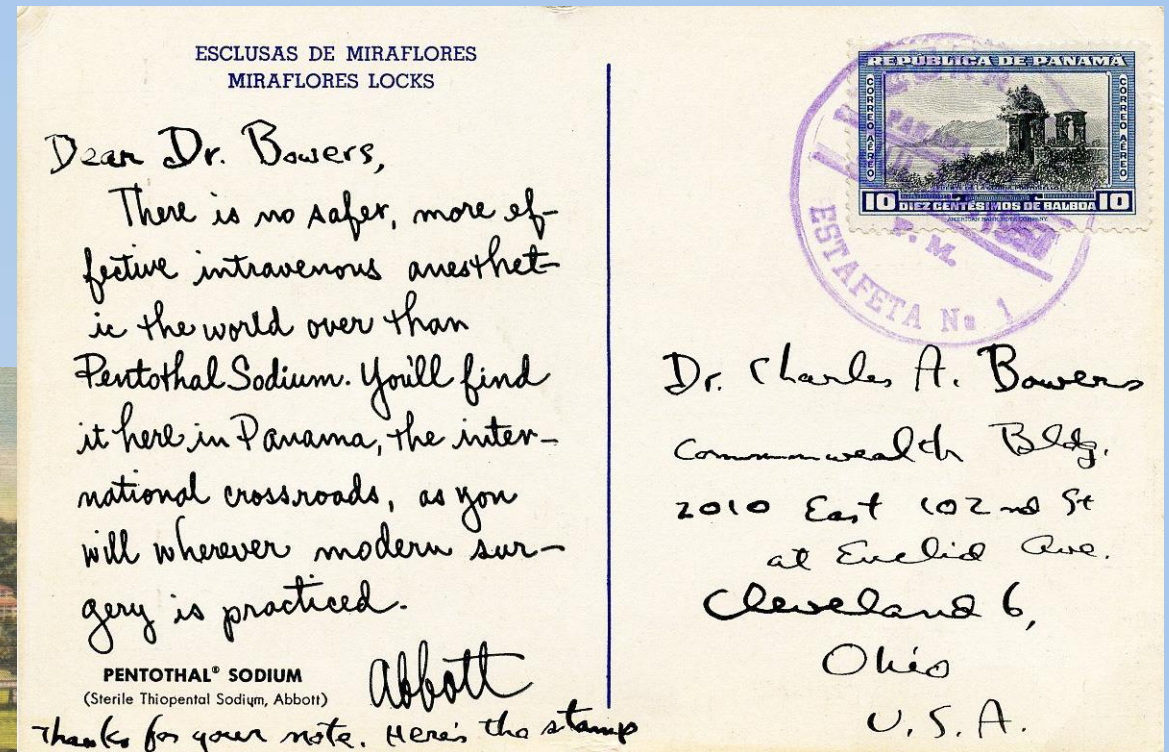 ESCLUSAS DE MIRAFLORES
MIRAFLORES LOCKS
Dear Dr. Bowers,
There is no safer, more ef-
fective intravenous anesthet-
ic the world over than
Pentothal Sodium. You'll find
it here in Panama, the inter-
national crossroads, as you
will wherever modern sur-
gery is practiced.
Abbott
PENTOTHAL® SODIUM
(Sterile Thiopental Sodium, Abbott)
Thanks for your note. Here's the stamp
REPUBLICA DE PANAMÁ
CORREO AEREO
CORREO AEREO
10 DIEZ CENTESIMOS DE BALBOA 10
AMERICAN BANK NOTE COMPANY
PANAMA
P. M.
ESTAFETA No 1
Dr. Charles A. Bowers
Commonwealth Bldg.
2010 East 102nd St
at Euclid Ave.
Cleveland 6,
Ohio
U. S. A.